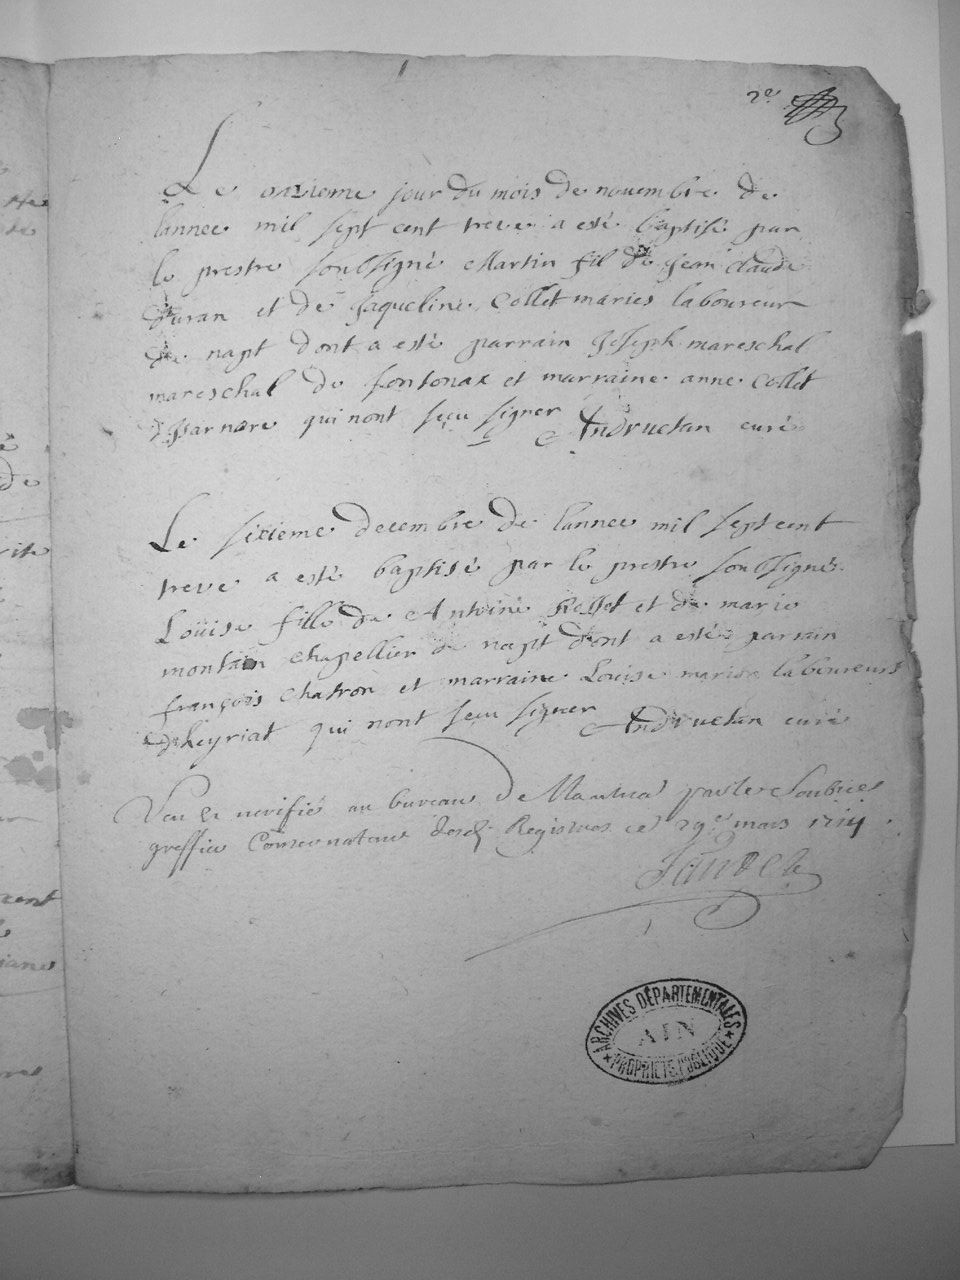 2e
Le onzieme jour du mois de novembre de
lannee mil sept cent treze a esté baptisé par
le prestre soubsigné Martin fil de Jean Claude
duran et de Jaqueline Collet maries laboureur
de napt dont a esté parrain Joseph mareschal
mareschal de fontonax et marraine anne Collet
disarnore qui nont sceu signer Andruetan curé
Le sixieme decembre de lannee mil sept cent
treze a esté baptisé par le prestre soubsigné
Louise fille de Antoine Resset et de marie
montain chapellier de napt dont a esté parrain
françois chatron et marraine Louise marion laboureurs
dheyriat qui nont sceu signer Andruetan curé
Veu et verifié au bureau de Nantua par le Soubsigné
greffier Conservateur desd Registres ce 29e mars 1714
ARCHIVES DÉPARTEMENTALES
AIN
PROPRIÉTÉ PUBLIQUE